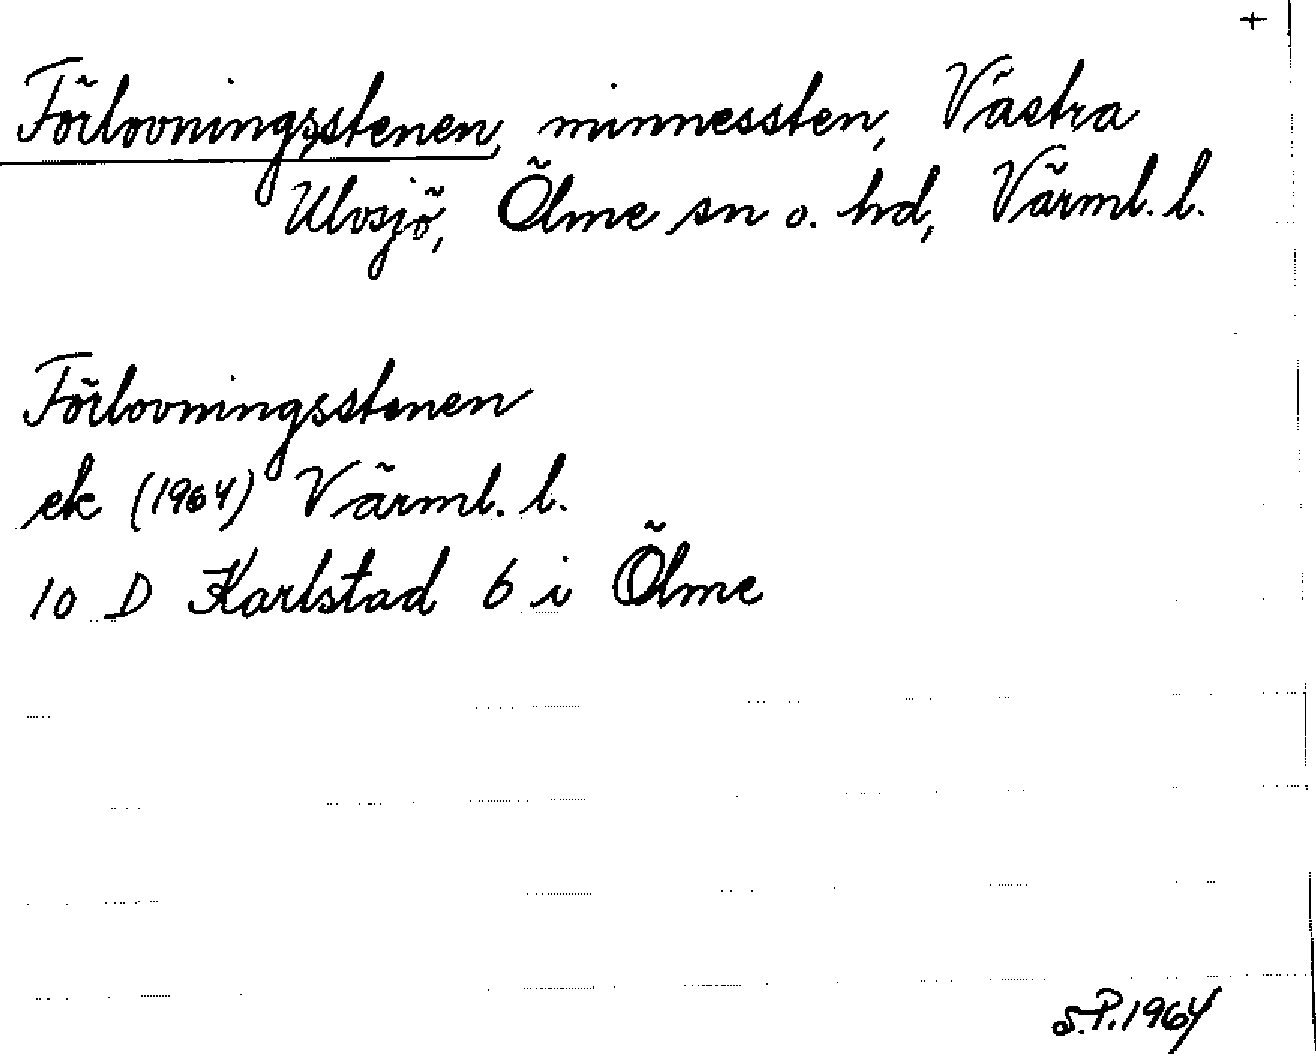 +
Förlovningsstenen, minnessten, Västra
Ulvsjö, Ölme sn o. hd, Värml. l.
Förlovningsstenen
ek (1964) Värml. l.
10 D Karlstad 6 i Ölme
S.P. 1964